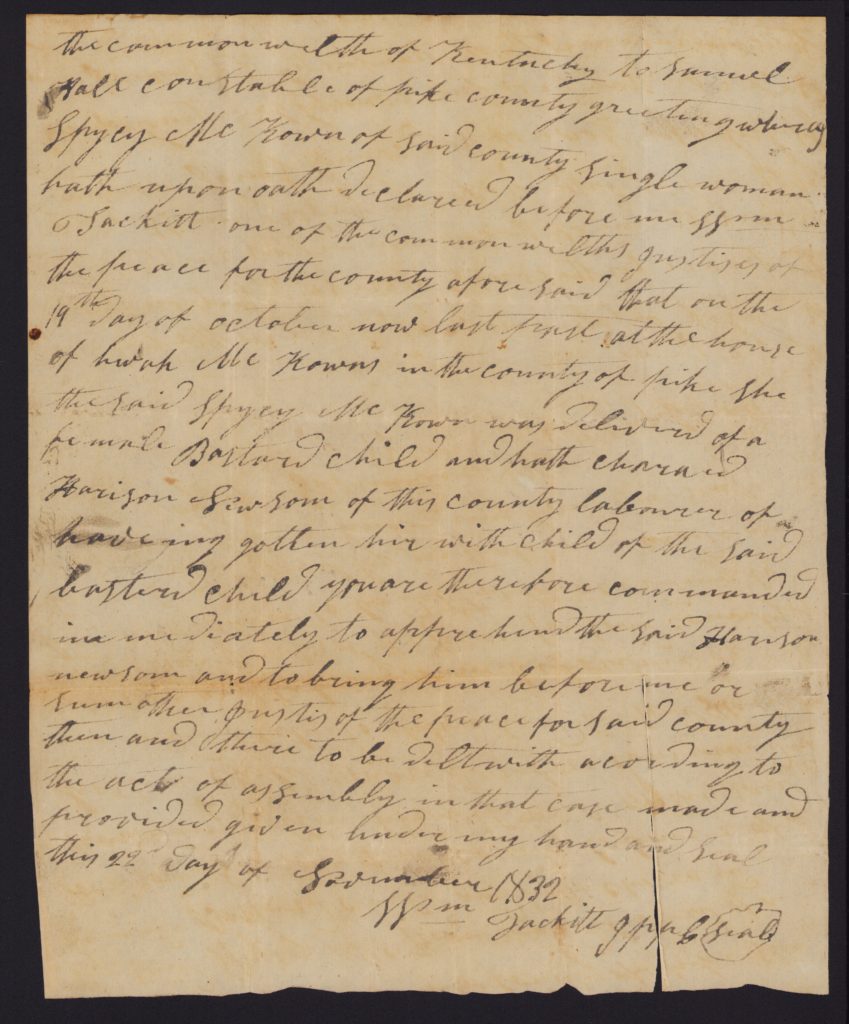 the common welth of Kentucky to Samuel
Hall constable of pike county greeting whereas
Spycy Mc Kown of said county single woman
hath upon oath declareed before me Wm
Tackitt one of the common welths gustises of
the peace for the county afore said that on the
19th day of october now last past at the house
of Mc Kowns in the county of pike she
the said Spycy Mc Kown was deliverd of a
female Bastard child and hath charged
Harison Newsom of this county labourer of
haveing gotten hir with child of the said
basterd child you are therefore commanded
immediately to apprehend the said Harison
newsom and to bring him before me or
sum other justis of the peace for said county
then and there to be delt with acording to
the act of assembly in that case made and
provided given under my hand and seal
this 22d day of November 1832
Wm
Tackitt J P P C Seal